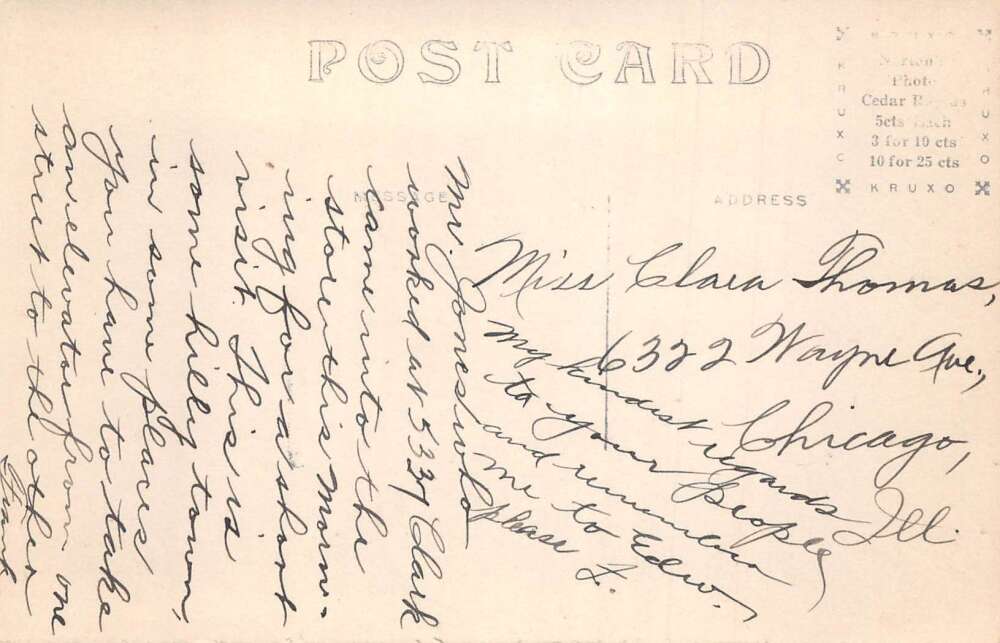 POST CARD
KRUXO
Norton's
Photo
Cedar Rapids
5cts Each
3 for 10 cts
10 for 25 cts
KRUXO
MESSAGE
ADDRESS
Mr. Jones who
worked at 5337 Clark
came into the
store this morn-
ing for a short
visit. This is
some hilly town,
in some places
you have to take
an elevator from one
street to the other
Frank
Miss Clara Thomas,
6322 Wayne Ave.,
Chicago,
Ill.
My kindest regards
to your people
and remember
me to Edw.
please F.